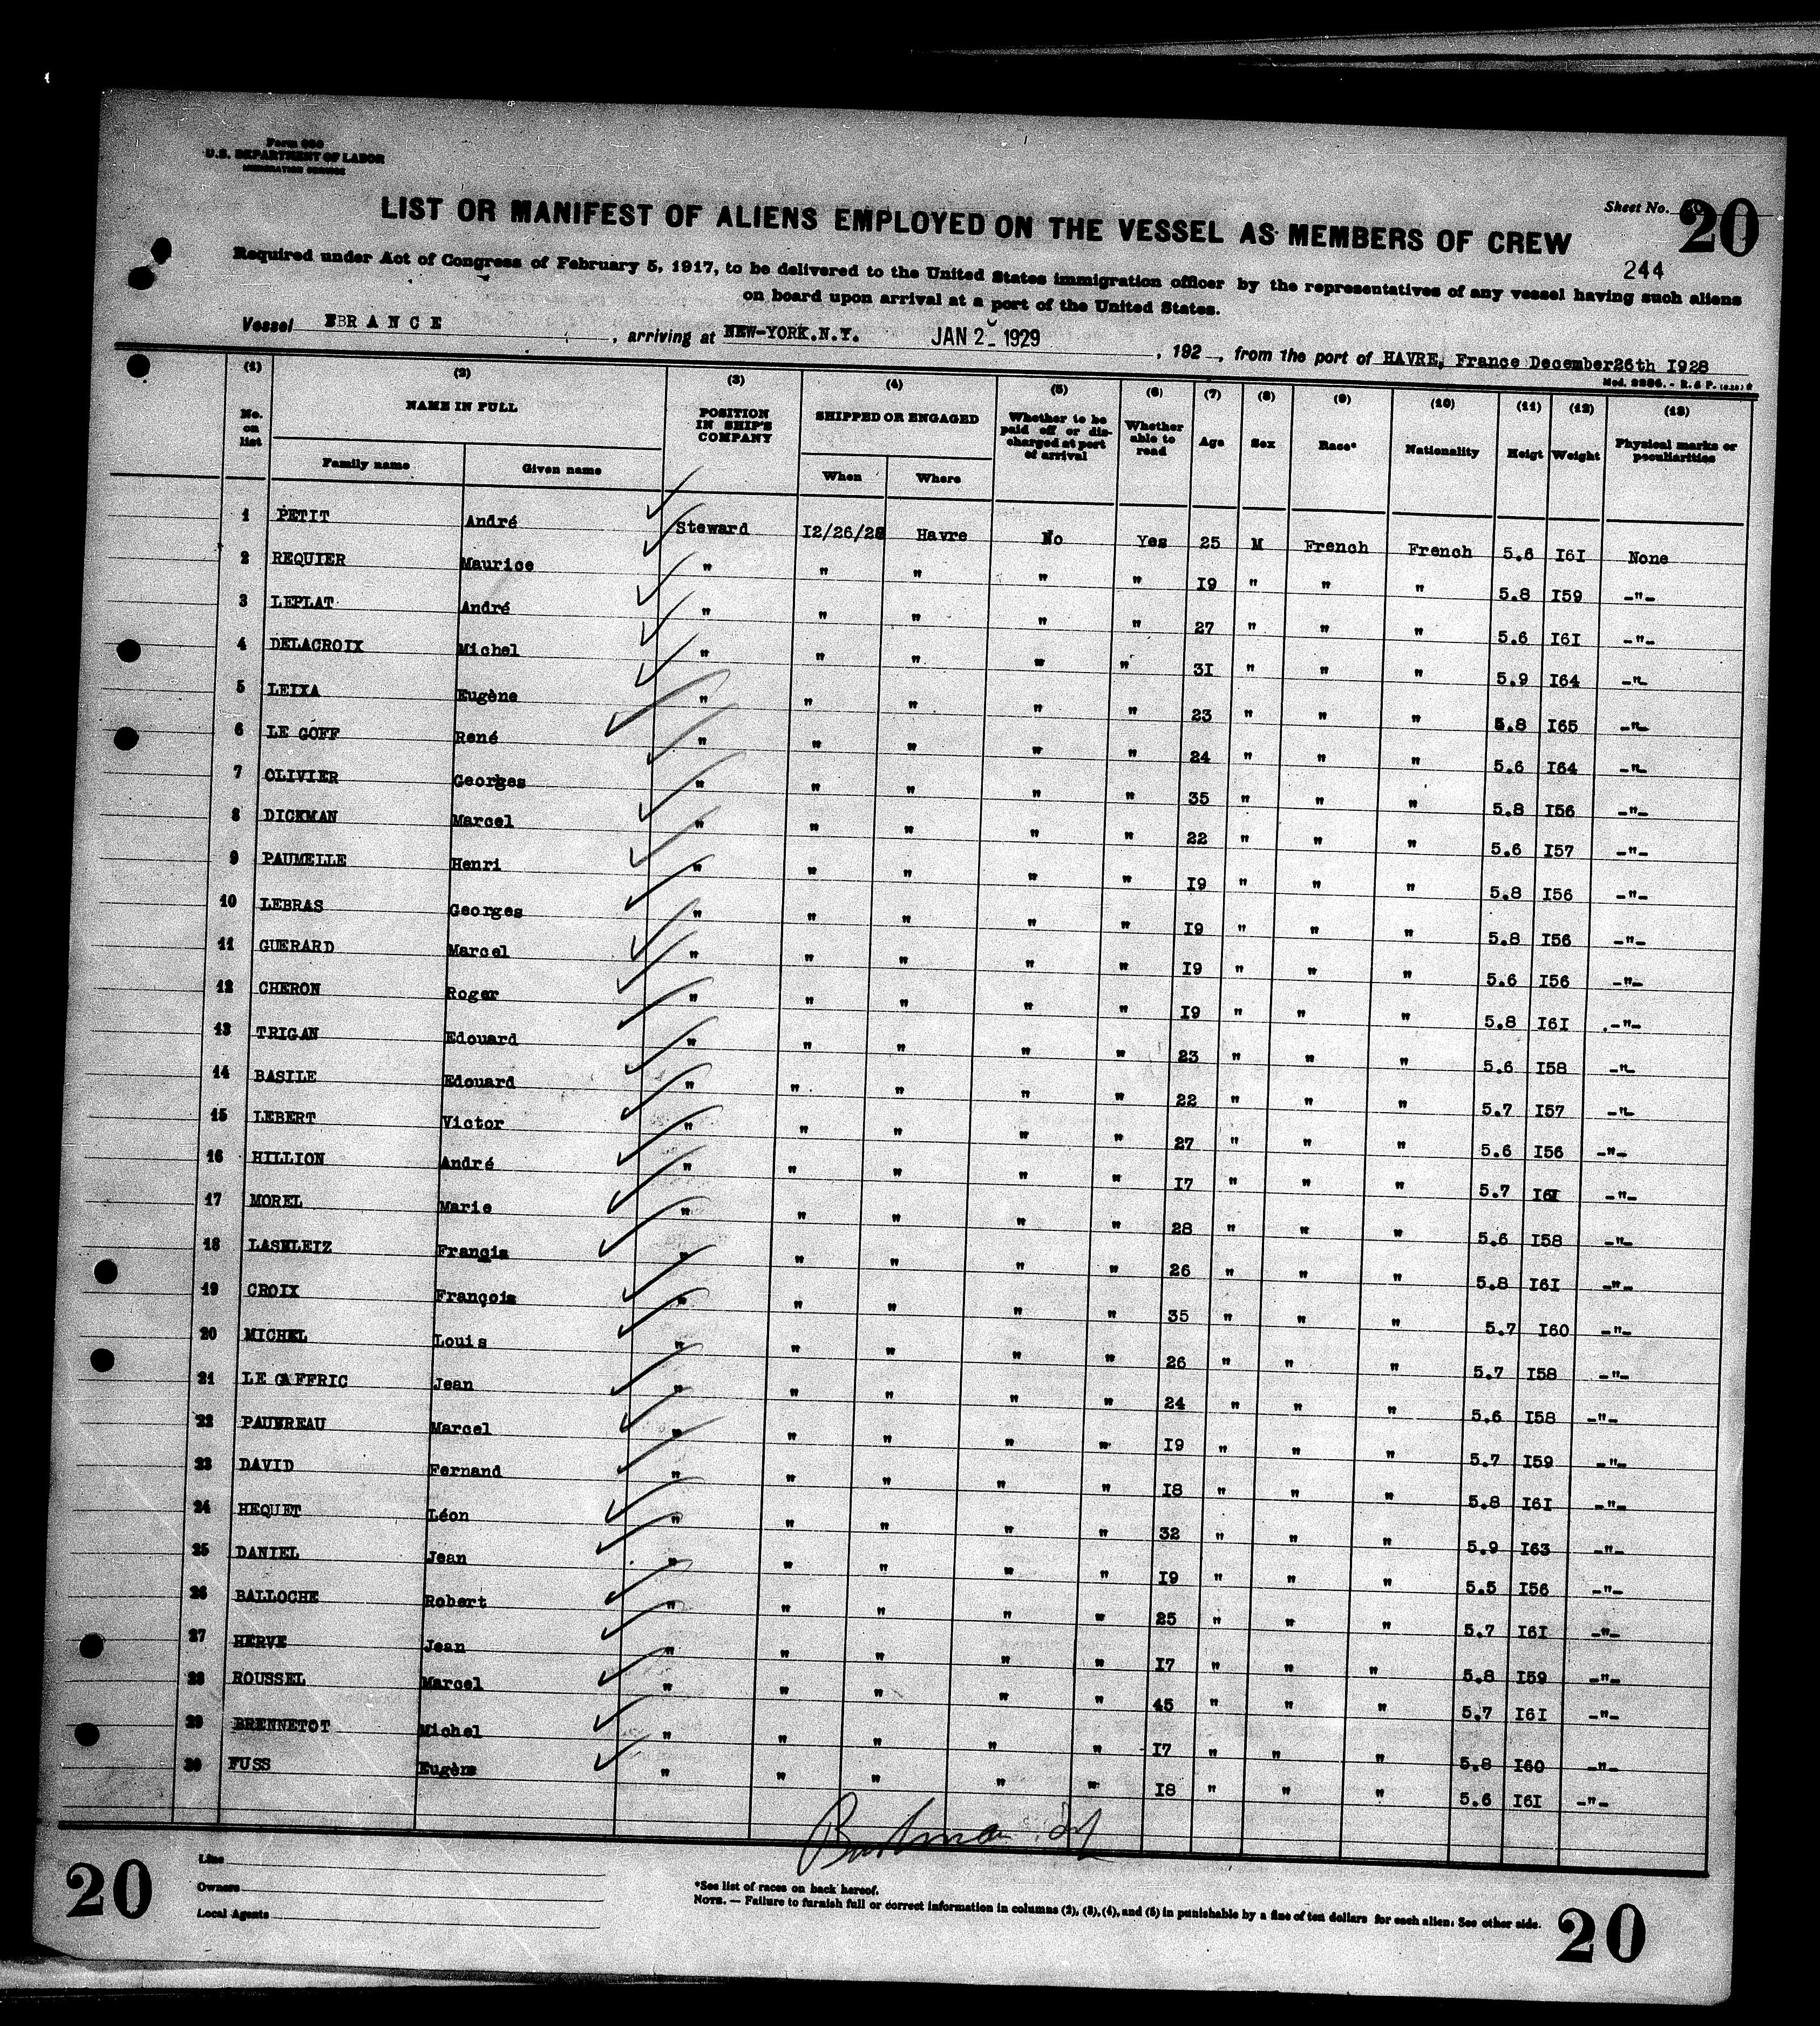 Form 680
U.S. DEPARTMENT OF LABOR
IMMIGRATION SERVICE
Sheet No. 20
LIST OR MANIFEST OF ALIENS EMPLOYED ON THE VESSEL AS MEMBERS OF CREW
244
Required under Act of Congress of February 5, 1917, to be delivered to the United States immigration officer by the representatives of any vessel having such aliens
on board upon arrival at a port of the United States.
Vessel FRANCE, arriving at NEW-YORK.N.Y. JAN 2 - 1929, 192 , from the port of HAVRE, France December26th I928
Mod. 2286. - R. & P.
(1) (2) (3) (4) (5) (6) (7) (8) (9) (10) (11) (12) (13)
No. on list NAME IN FULL POSITION IN SHIP'S COMPANY SHIPPED OR ENGAGED Whether to be paid off or discharged at port of arrival Whether able to read Age Sex Race* Nationality Heigt Weight Physical marks or peculiarities
Family name Given name When Where
1 PETIT André Steward I2/26/28 Havre No Yes 25 M French French 5.6 I6I None
2 REQUIER Maurice " " " " " I9 " " " 5.8 I59 -"-
3 LEPLAT André " " " " " 27 " " " 5.6 I6I -"-
4 DELACROIX Michel " " " " " 3I " " " 5.9 I64 -"-
5 LEIXA Eugène " " " " " 23 " " " 5.8 I65 -"-
6 LE GOFF René " " " " " 24 " " " 5.6 I64 -"-
7 OLIVIER Georges " " " " " 35 " " " 5.8 I56 -"-
8 DICKMAN Marcel " " " " " 22 " " " 5.6 I57 -"-
9 PAUMELLE Henri " " " " " I9 " " " 5.8 I56 -"-
10 LEBRAS Georges " " " " " I9 " " " 5.8 I56 -"-
11 GUERARD Marcel " " " " " I9 " " " 5.6 I56 -"-
12 CHERON Roger " " " " " I9 " " " 5.8 I6I -"-
13 TRIGAN Edouard " " " " " 23 " " " 5.6 I58 -"-
14 BASILE Edouard " " " " " 22 " " " 5.7 I57 -"-
15 LEBERT Victor " " " " " 27 " " " 5.6 I56 -"-
16 HILLION André " " " " " I7 " " " 5.7 I6I -"-
17 MOREL Marie " " " " " 28 " " " 5.6 I58 -"-
18 LASKLEIZ Francis " " " " " 26 " " " 5.8 I6I -"-
19 CROIX François " " " " " 35 " " " 5.7 I60 -"-
20 MICHEL Louis " " " " " 26 " " " 5.7 I58 -"-
21 LE GAFFRIC Jean " " " " " 24 " " " 5.6 I58 -"-
22 Marcel " " " " " I9 " " " 5.7 I59 -"-
23 DAVID Fernand " " " " " I8 " " " 5.8 I6I -"-
24 HEQUET Léon " " " " " 32 " " " 5.9 I63 -"-
25 DANIEL Jean " " " " " I9 " " " 5.5 I56 -"-
26 BALLOCHE Robert " " " " " 25 " " " 5.7 I6I -"-
27 HERVE Jean " " " " " I7 " " " 5.8 I59 -"-
28 ROUSSEL Marcel " " " " " 45 " " " 5.7 I6I -"-
29 BRENNETOT Michel " " " " " I7 " " " 5.8 I60 -"-
30 FUSS Eugène " " " " " I8 " " " 5.6 I6I -"-
20
Line
Owners
Local Agents
*See list of races on back hereof.
NOTE. — Failure to furnish full or correct information in columns (2), (3), (4), and (5) in punishable by a fine of ten dollars for each alien. See other side.
20